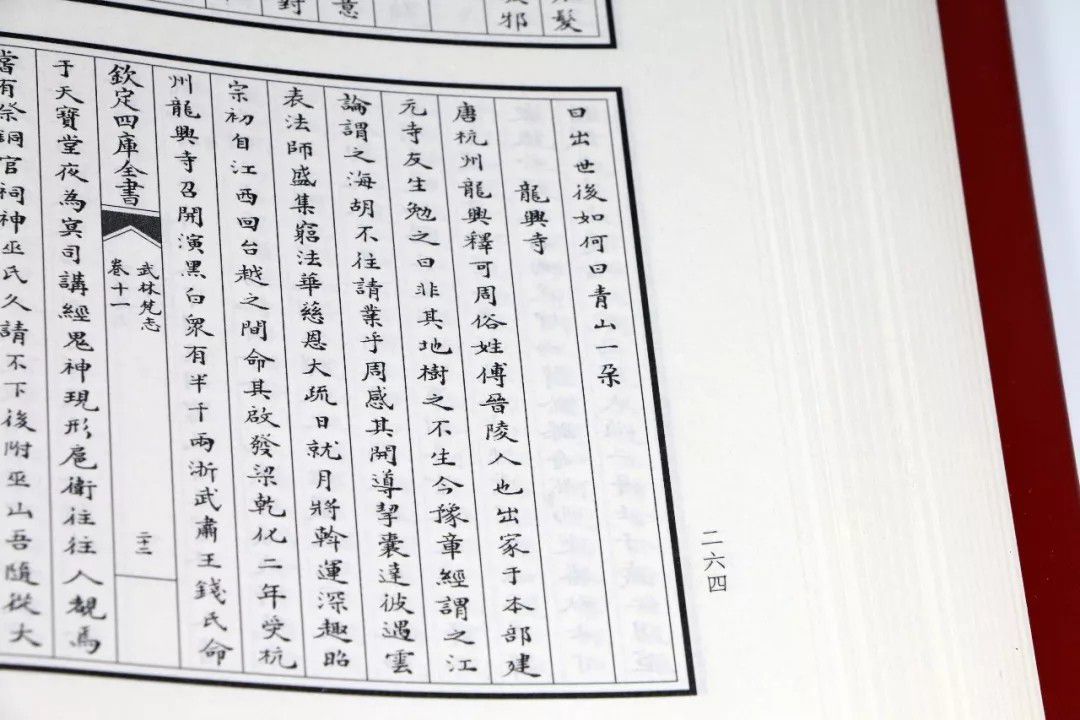 髮
邪
意
對
曰出世後如何曰青山一朶
龍興寺
唐杭州龍興釋可周俗姓傅晉陵人也出家于本部建
元寺友生勉之曰非其地樹之不生今豫章經謂之江
論謂之海胡不往請業乎周感其開導挈囊達彼遇雲
表法師盛集窮法華慈恩大疏日就月將斡運深趣昭
宗初自江西回台越之間命其啟發梁乾化二年受杭
州龍興寺召開演黑白衆有半千兩浙武肅王錢氏命
欽定四庫全書
武林梵志
卷十一
二十三
于天寶堂夜為冥司講經鬼神現形扈衛往往人覩焉
嘗有祭銅官祠神巫氏久請不下後附巫曰吾隨從大
二六四